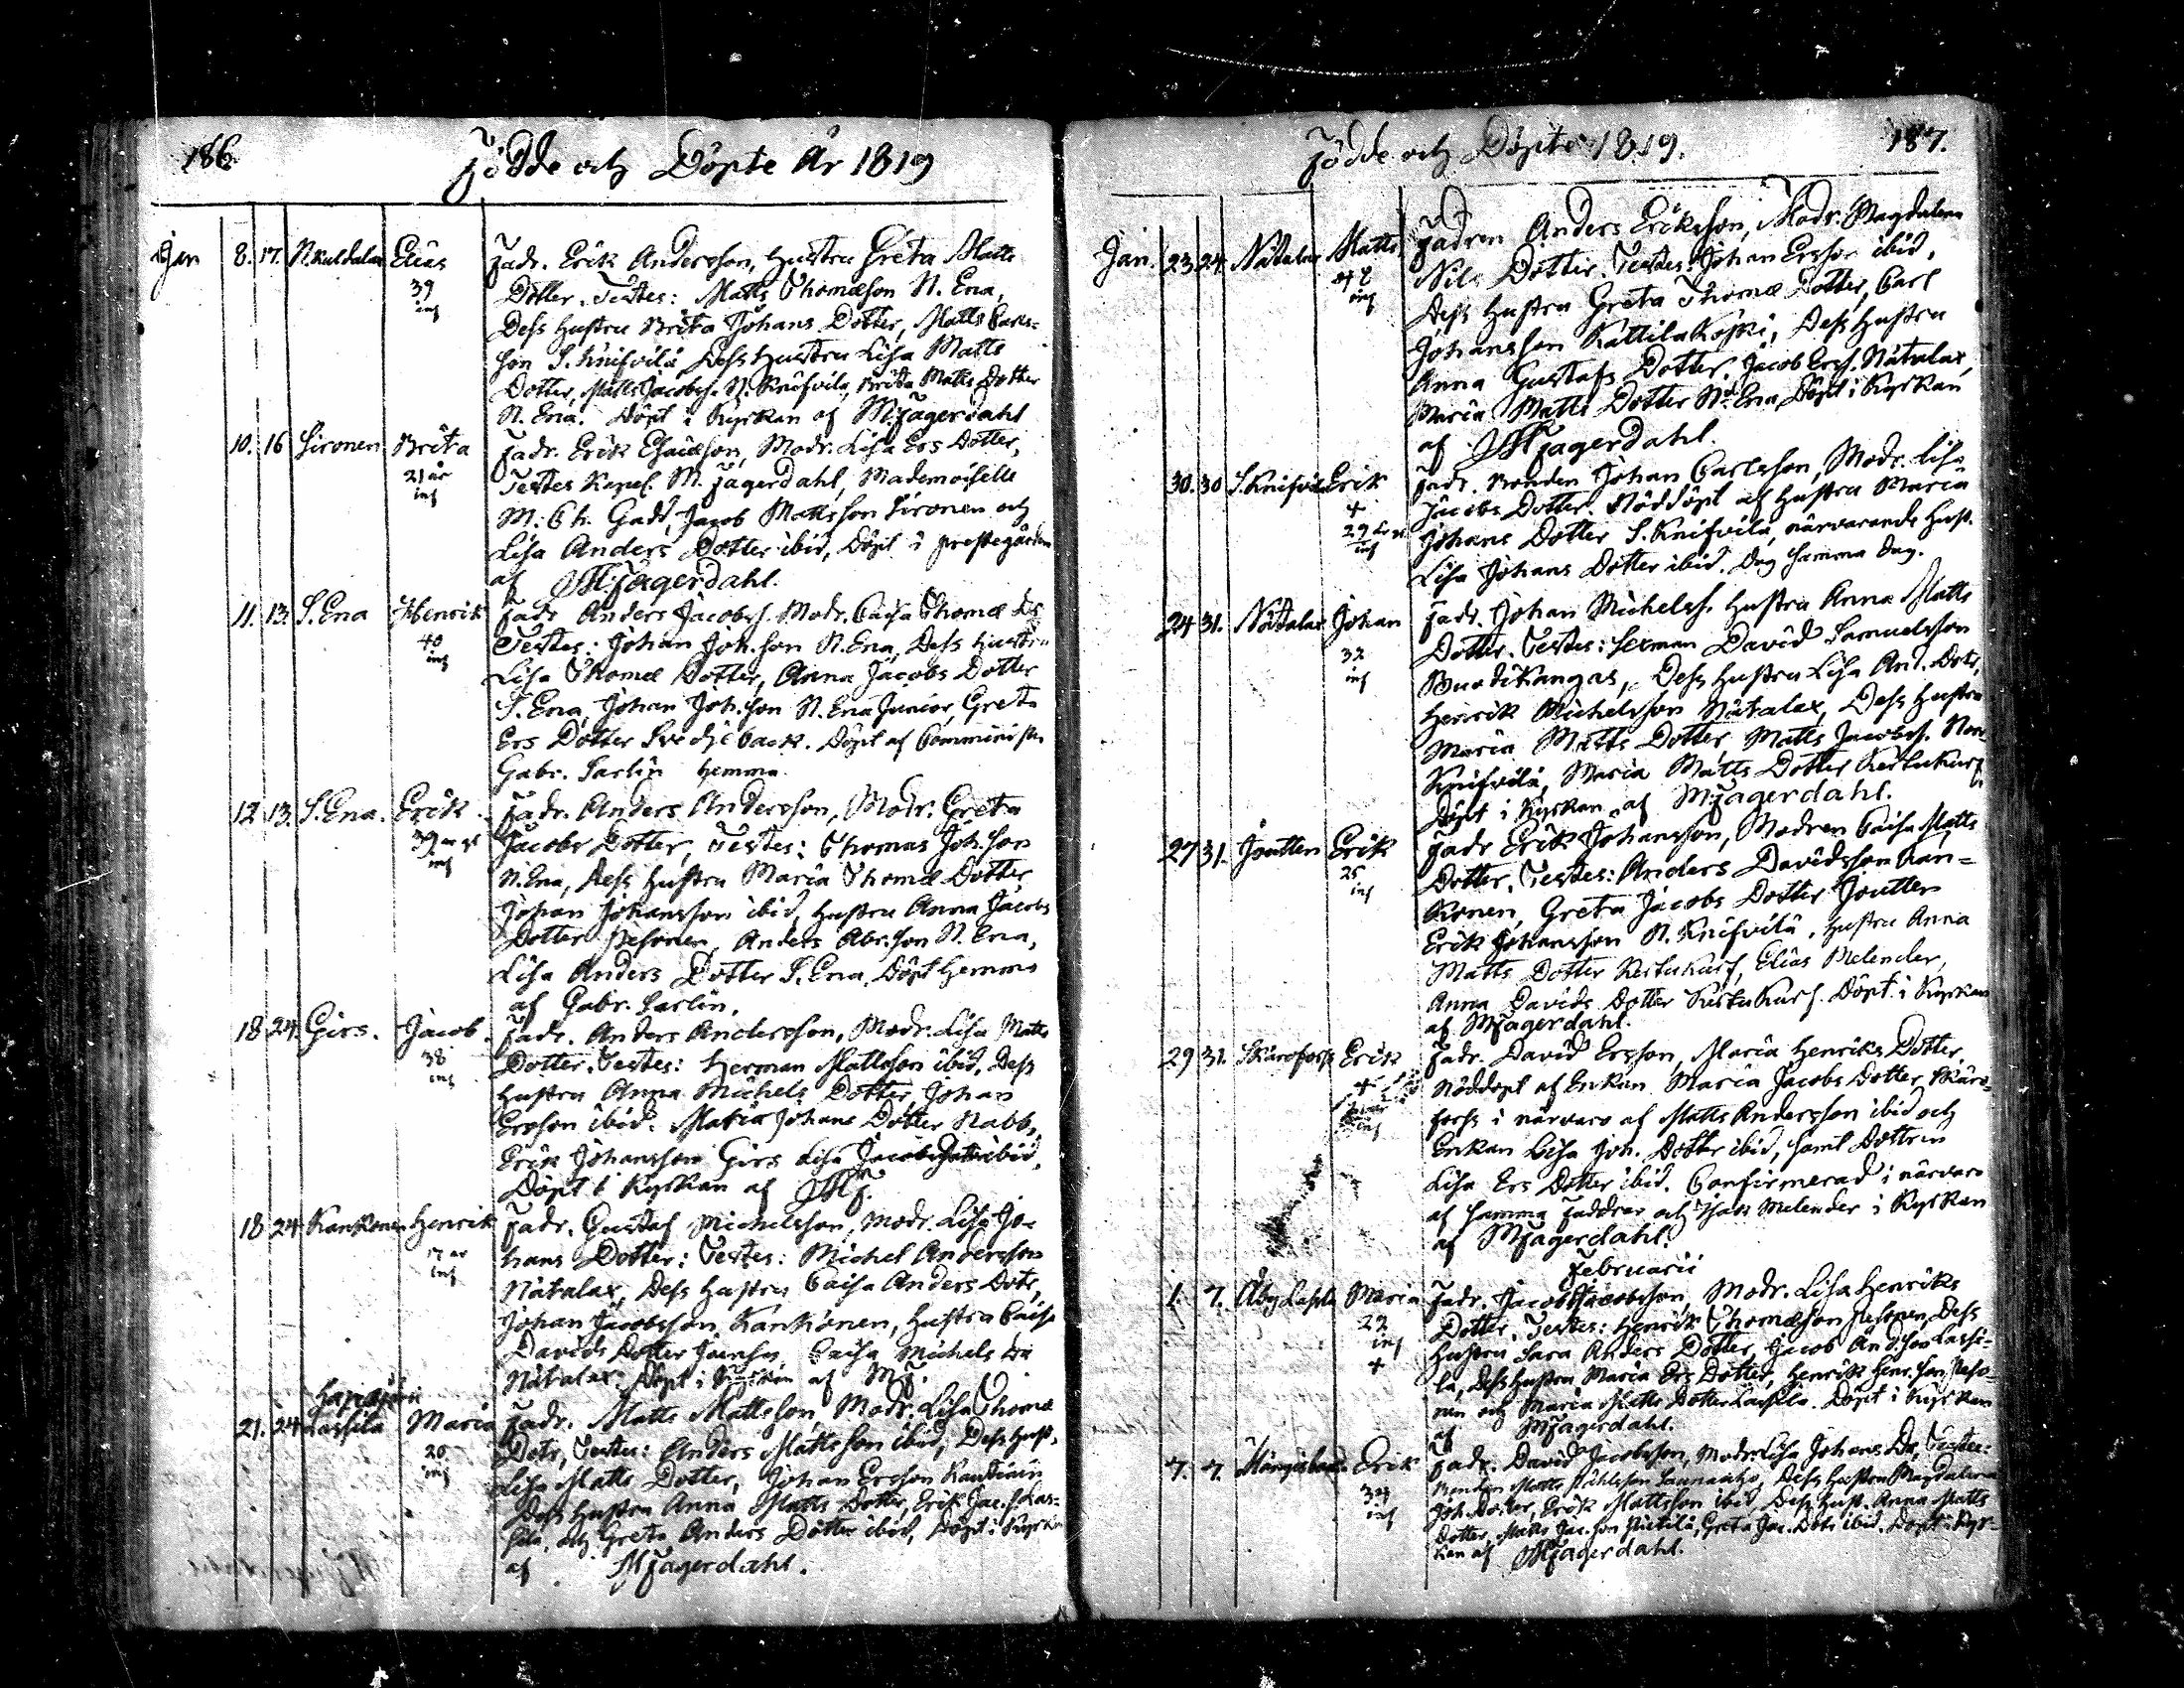 186.
Födde och Döpte År 1819
Jan 8. 17. Elias Fadr. Erik Andersson, Hustru Greta Matts
39 Dotter. Testes: Matts Thomæson N. Ena,
inf Dess Hustru Brita Johans Dotter, Matts Carls=
son S. Knifvilä, Dess Hustru Lisa Matts
Dotter, Matts Jacobss. N. Knifvilä, Brita Matts Dotter
N. Ena. Döpt i Kyrkan af M. Fagerdahl
10. 16 Sironen Brita Fadr. Erik Esaiæson, Modr. Lisa Ers Dotter,
21 år Testes Kapel. M. Fagerdahl, Mademoiselle
inf M. Ch. Gadd, Jacob Mattsson Sironen och
Lisa Anders Dotter ibid, Döpt i prestegården
af M Fagerdahl.
11. 13. S. Ena Henrik Fadr Anders Jacobss. Modr. Caisa Thomæ
40 Testes: Johan Joh.son N. Ena, Dess Hustru
inf Lisa Thomæ Dotter, Anna Jacobs Dotter
S. Ena, Johan Joh.son N. Ena Junior, Greta
Ers Dotter Svedjeback. Döpt af Comminister
Gabr. Sarlin hemma.
12 13. S. Ena. Erik Fadr. Anders Andersson, Modr. Greta
39 Jacobs Dotter, Testes: Thomas Joh.son
inf N. Ena, Dess Hustru Maria Thomæ Dotter
Johan Johansson ibid, Hustru Anna Jacobs
Dotter Pesonen, Anders Abr.son N. Ena,
Lisa Anders Dotter S. Ena, Döpt hemma
af Gabr. Sarlin.
18 24. Girs. Jacob. Fadr. Anders Andersson, Modr. Lisa Matts
38 Dotter. Testes: Herman Mattsson ibid, Dess
inf Hustru Anna Michels Dotter, Johan
Ersson ibid. Maria Johans Dotter Nabb,
Erik Johansson Girs Lisa Jacobs Dotter ibid,
Döpt i Kyrkan af MF.
18 24 Kankonen Henrik Fadr. Gustaf Michelsson, Modr. Lisa Jo=
inf hans Dotter: Testes: Michel Andersson
Nätalax, Dess Hustru Caisa Anders Dotr,
Johan Jacobsson Kankonen, Hustru Caisa
Davids Dotter Caisa Michels
Nätalax. Döpt i Kyrkan af MF.
21. 24 Lassila Maria Fadr. Matts Mattsson, Modr. Lisa Thomæ
20 Dotr, Testes: Anders Mattsson ibid, Dess Hust.
inf Lisa Matts Dotter, Johan Ersson
Dess Hustru Anna Matts Dotter, Erik Jac.s. Las=
sila, och Greta Anders Dotter ibid, Döpt i Kyrkan
af M Fagerdahl.
Födde och Döpte 1819. 187.
Jan. 23 24. Nätalax Matts Fadren Anders Eriksson, Modr. Magdalena
inf Nils Dotter. Testes: Johan Ersson ibid,
Dess Hustru Greta Thomæ Dotter, Carl
Johansson Kattilakoski, Dess Hustru
Anna Gustafs Dotter. Jacob Erss. Nätalax,
Maria Matts Dotter N. Ena, Döpt i Kyrkan
af M Fagerdahl.
30. 30 S. Knifvilä Erik Fadr. Bonden Johan Carlsson, Modr. Lisa
+ Jacobs Dotter. Nöddöpt af Hustru Maria
29 Johans Dotter S. Knifvilä, närvarande Hust.
inf Lisa Johans Dotter ibid. Dog samma dag.
24 31. Nätalax Johan Fadr. Johan Michelss. Hustru Anna Matts
32 Dotter. Testes: Sexman David Samuelsson
inf Dess Hustru Lisa And. Dotr,
Henrik Michelsson Nätalax, Dess Hustru
Maria Matts Dotter, Matts Jacobss. Norr
Knifvilä, Maria Matts Dotter
Döpt i Kyrkan af M Fagerdahl.
27 31. Joutten Erik Fadr Erik Johansson, Modren Caisa Matts
25 Dotter. Testes: Anders Davidsson Kan=
inf konen, Greta Jacobs Dotter Joutten
Erik Johansson N. Knifvilä. Hustru Anna
Matts Dotter Elias Melender,
Anna Davids Dotter Döpt i Kyrkan
af M Fagerdahl.
29 31. Erik Fadr. David Ersson, Maria Henriks Dotter,
+ Nöddöpt af Enkan Maria Jacobs Dotter
inf forss i närvaro af Matts Andersson ibid och
Enkan Lisa Joh. Dotter ibid, samt Dottren
Lisa Ers Dotter ibid. Confirmerad i närvaro
af samma Faddrar och Isak Melender i Kyrkan
af M Fagerdahl.
Februarii
1. 7. Maria Fadr. Jacob Jacobsson, Modr. Lisa Henriks
22 Dotter. Testes: Henrik Thomæson Pesonen, Dess
inf Hustru Sara Anders Dotter, Jacob And.son Lassi=
+ la, Dess Hustru Maria Ers Dotter, Henrik Henr.son Peso=
nen och Maria Matts Dotter Lassila. Döpt i Kyrkan
af M Fagerdahl.
7. 7. Erik Fadr. David Jacobsson, Modr. Lisa Johans Dr, Testes:
Bonden Matts Dess Hustru Magdalena
inf Joh. Dotter, Erik Mattsson ibid Dess Hust. Anna Matts
Dotter, Matts Jac.son Pietilä, Greta Jac. Dotr ibid. Döpt i Kyr=
kan af M Fagerdahl.